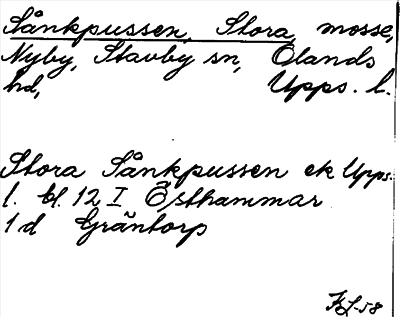 Sånkpussen, Stora, mosse,
Nyby, Stavby sn, Ölands
hd, Upps. l.
Stora Sånkpussen ek Upps.
l. bl. 12 I Östhammar
1 d Gräntorp